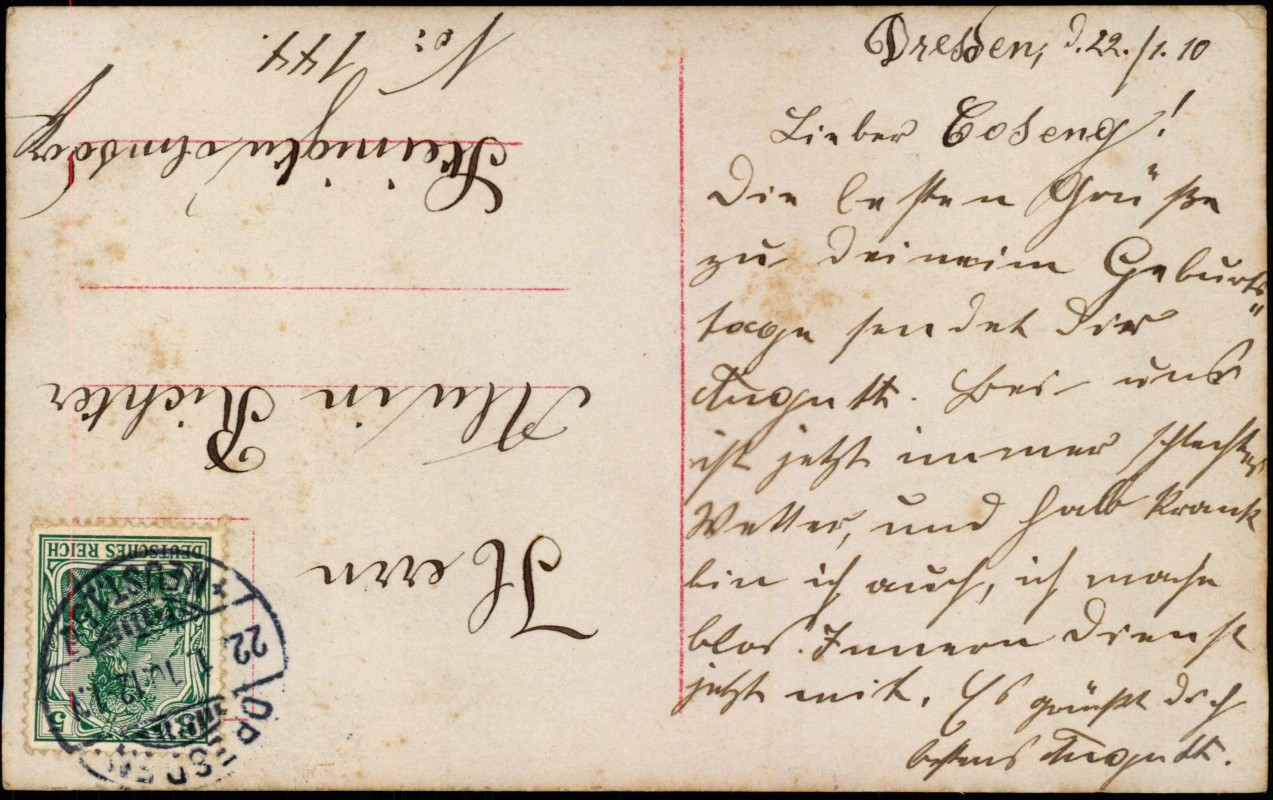 Dresden, d. 22./1. 10
Lieber Coseng!
Die besten Grüße
zu deineim Geburts
tage sendet dir
Augustt. Bei uns
ist jetzt immer schlechtes
Wetter, und halb krank
bin ich auch, ich mache
blos Innern Dienst
jetzt mit. Es grüßt dich
bestens Augustt.
Herrn
Alwin Richter
Steinigtwolmsdorf
No: 144.
DEUTSCHES REICH
5
DRESDEN
NEUSTADT
22